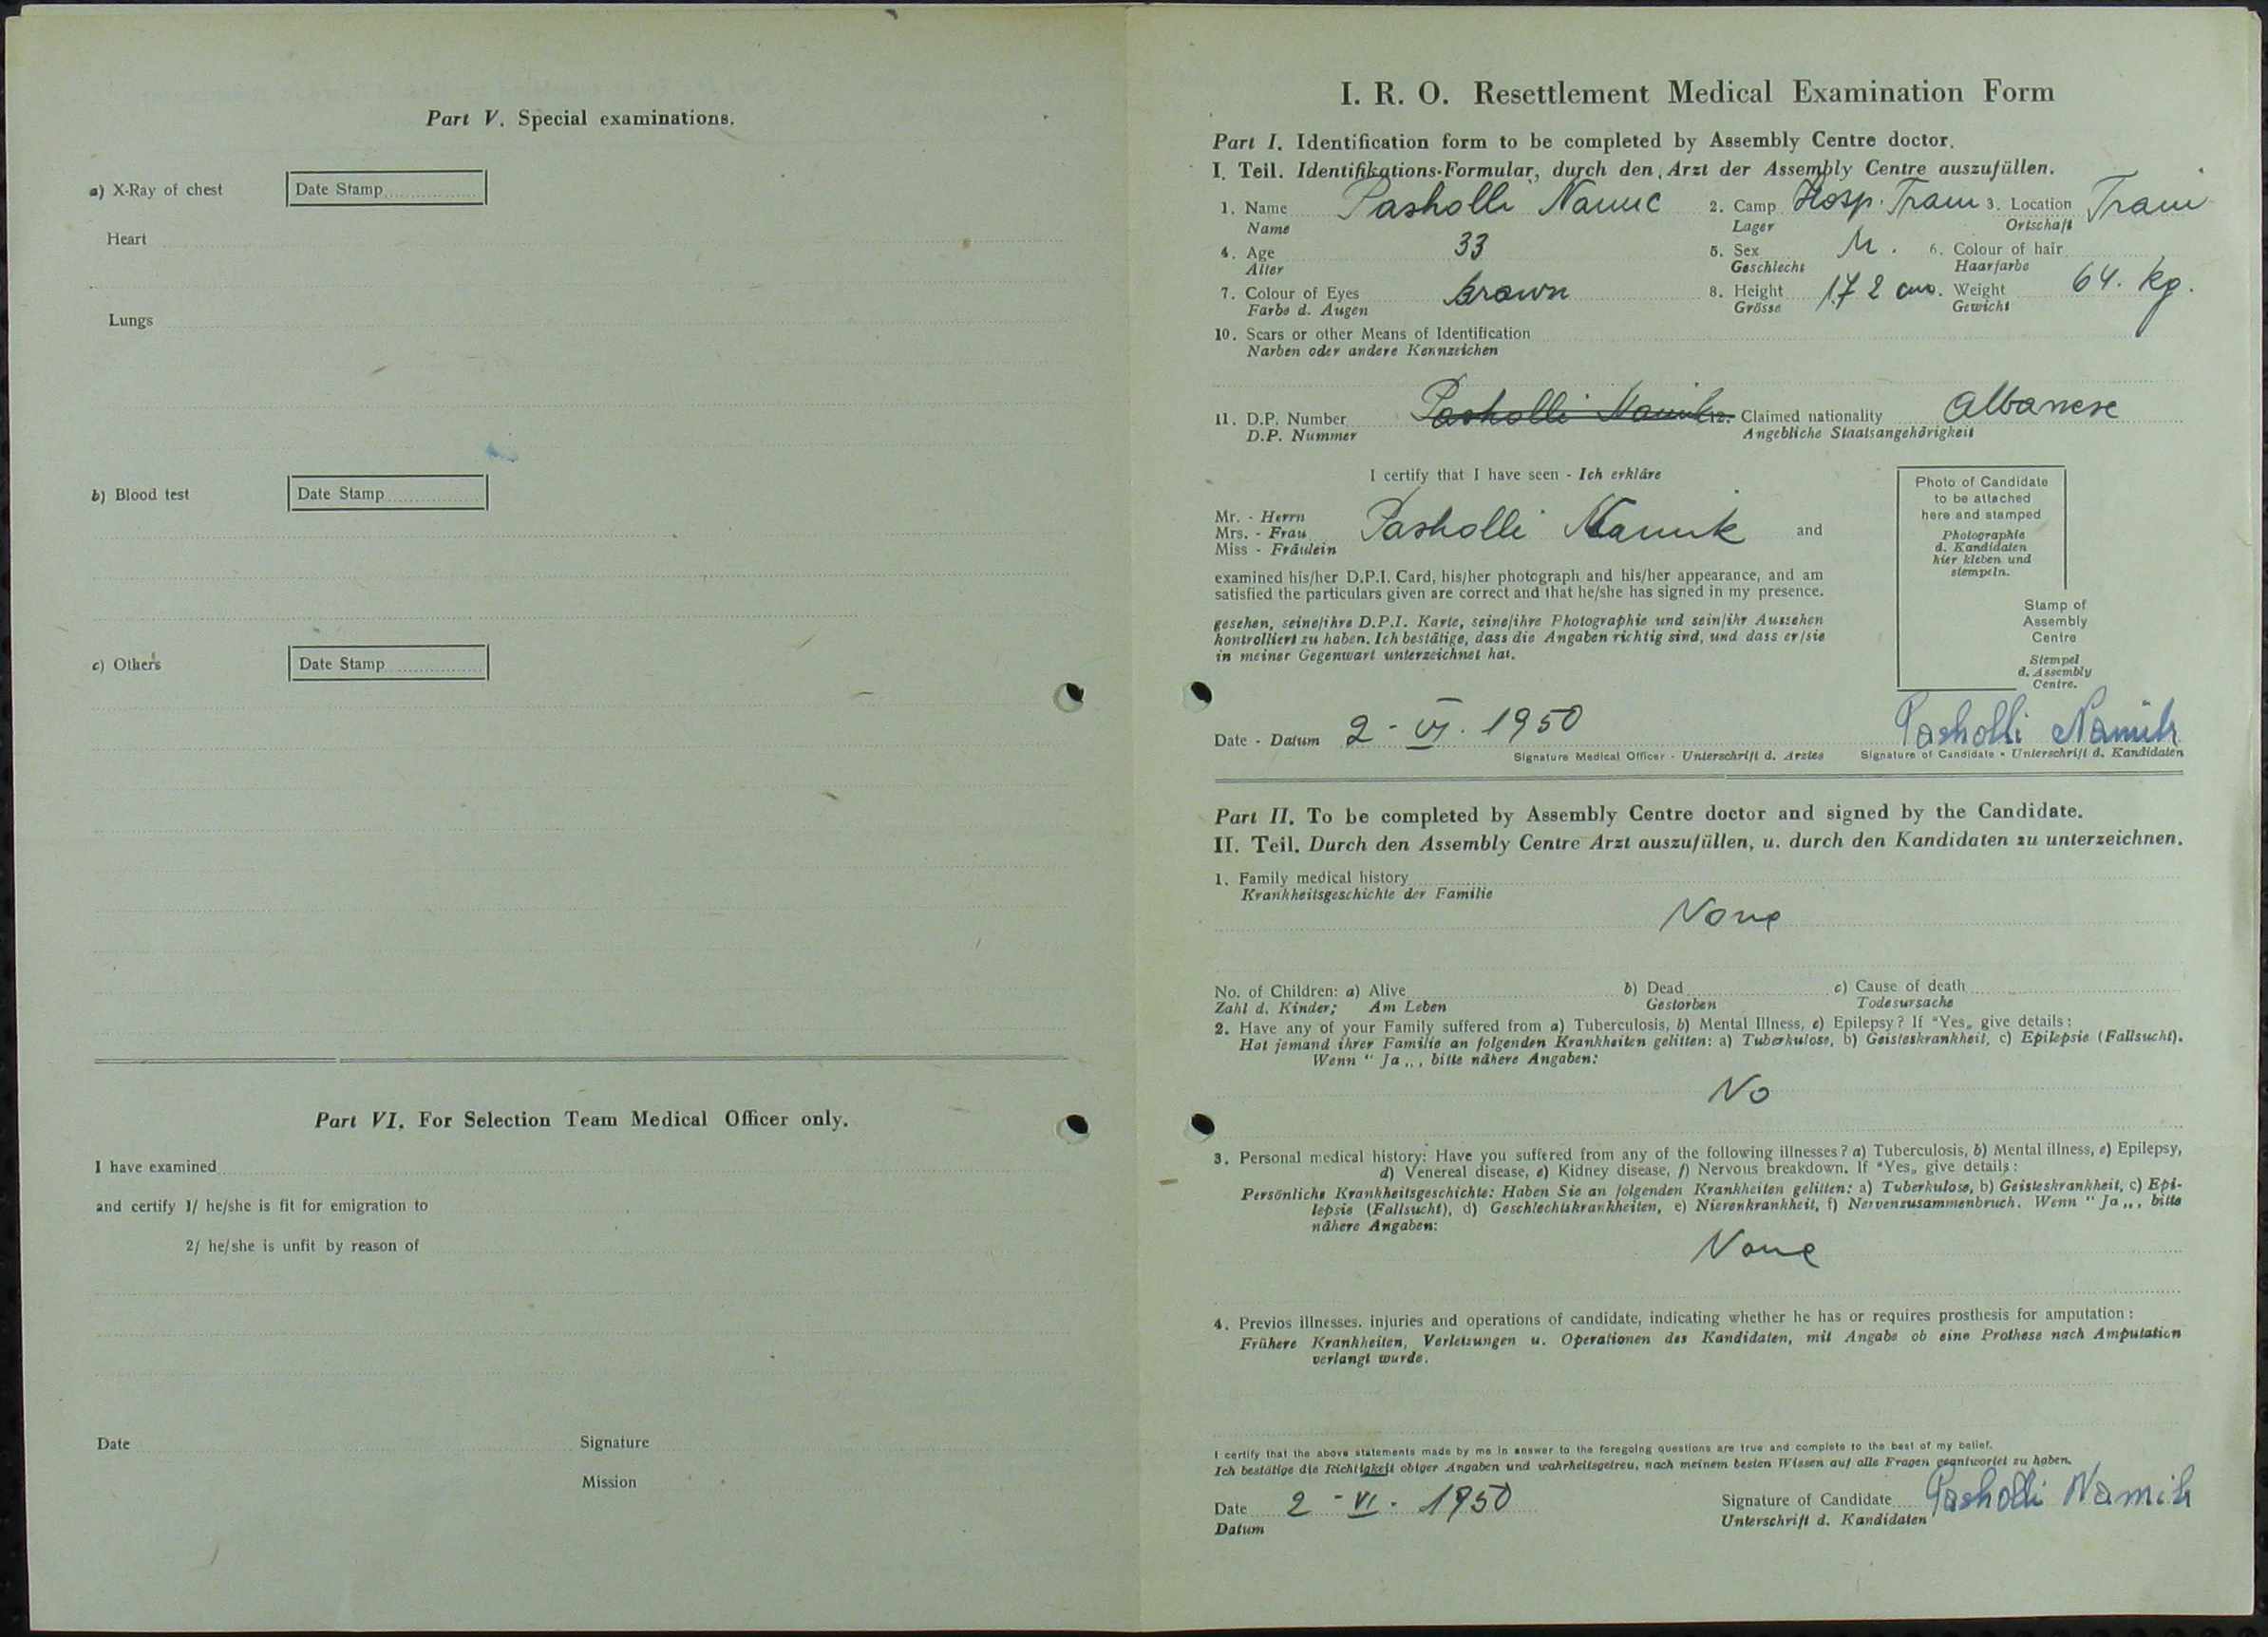 Part V. Special examinations.
a) X-Ray of chest Date Stamp
Heart
Lungs
b) Blood test Date Stamp
c) Others Date Stamp
Part VI. For Selection Team Medical Officer only.
I have examined
and certify 1/ he/she is fit for emigration to
2/ he/she is unfit by reason of
Date Signature
Mission
I. R. O. Resettlement Medical Examination Form
Part I. Identification form to be completed by Assembly Centre doctor.
I. Teil. Identifikations-Formular, durch den Arzt der Assembly Centre auszufüllen.
1. Name Pasholli Namic 2. Camp Hosp. Trani 3. Location Trani
Name Lager Ortschaft
4. Age 33 5. Sex M. 6. Colour of hair
Alter Geschlecht Haarfarbe
7. Colour of Eyes Brown 8. Height 172 cm. Weight 64. kg.
Farbe d. Augen Grösse Gewicht
10. Scars or other Means of Identification
Narben oder andere Kennzeichen
11. D.P. Number Pasholli Namik 12. Claimed nationality Albanese
D.P. Nummer Angebliche Staatsangehörigkeit
I certify that I have seen - Ich erkläre
Mr. - Herrn
Mrs. - Frau Pasholli Namik and
Miss - Fräulein
examined his/her D.P.I. Card, his/her photograph and his/her appearance, and am
satisfied the particulars given are correct and that he/she has signed in my presence.
gesehen, seine/ihre D.P.I. Karte, seine/ihre Photographie und sein/ihr Aussehen
kontrolliert zu haben. Ich bestätige, dass die Angaben richtig sind, und dass er/sie
in meiner Gegenwart unterzeichnet hat.
Photo of Candidate
to be attached
here and stamped
Photographie
d. Kandidaten
hier kleben und
stempeln.
Stamp of
Assembly
Centre
Stempel
d. Assembly
Centre.
Date - Datum 2 - VI. 1950 Pasholli Namik
Signature Medical Officer - Unterschrift d. Arztes Signature of Candidate - Unterschrift d. Kandidaten
Part II. To be completed by Assembly Centre doctor and signed by the Candidate.
II. Teil. Durch den Assembly Centre Arzt auszufüllen, u. durch den Kandidaten zu unterzeichnen.
1. Family medical history
Krankheitsgeschichte der Familie
None
No. of Children: a) Alive b) Dead c) Cause of death
Zahl d. Kinder; Am Leben Gestorben Todesursache
2. Have any of your Family suffered from a) Tuberculosis, b) Mental Illness, c) Epilepsy? If "Yes„ give details:
Hat jemand ihrer Familie an folgenden Krankheiten gelitten: a) Tuberkulose, b) Geisteskrankheit, c) Epilepsie (Fallsucht).
Wenn " Ja „, bitte nähere Angaben:
No
3. Personal medical history: Have you suffered from any of the following illnesses? a) Tuberculosis, b) Mental illness, c) Epilepsy,
d) Venereal disease, e) Kidney disease, f) Nervous breakdown. If "Yes„ give details:
Persönliche Krankheitsgeschichte: Haben Sie an folgenden Krankheiten gelitten: a) Tuberkulose, b) Geisteskrankheit, c) Epi-
lepsie (Fallsucht), d) Geschlechtskrankheiten, e) Nierenkrankheit, f) Nervenzusammenbruch. Wenn " Ja „, bitte
nähere Angaben:
None
4. Previos illnesses. injuries and operations of candidate, indicating whether he has or requires prosthesis for amputation:
Frühere Krankheiten, Verletzungen u. Operationen des Kandidaten, mit Angabe ob eine Prothese nach Amputation
verlangt wurde.
I certify that the above statements made by me in answer to the foregoing questions are true and complete to the best of my belief.
Ich bestätige die Richtigkeit obiger Angaben und wahrheitsgetreu, nach meinem besten Wissen auf alle Fragen geantwortet zu haben.
Date 2 - VI. 1950 Signature of Candidate Pasholli Namik
Datum Unterschrift d. Kandidaten